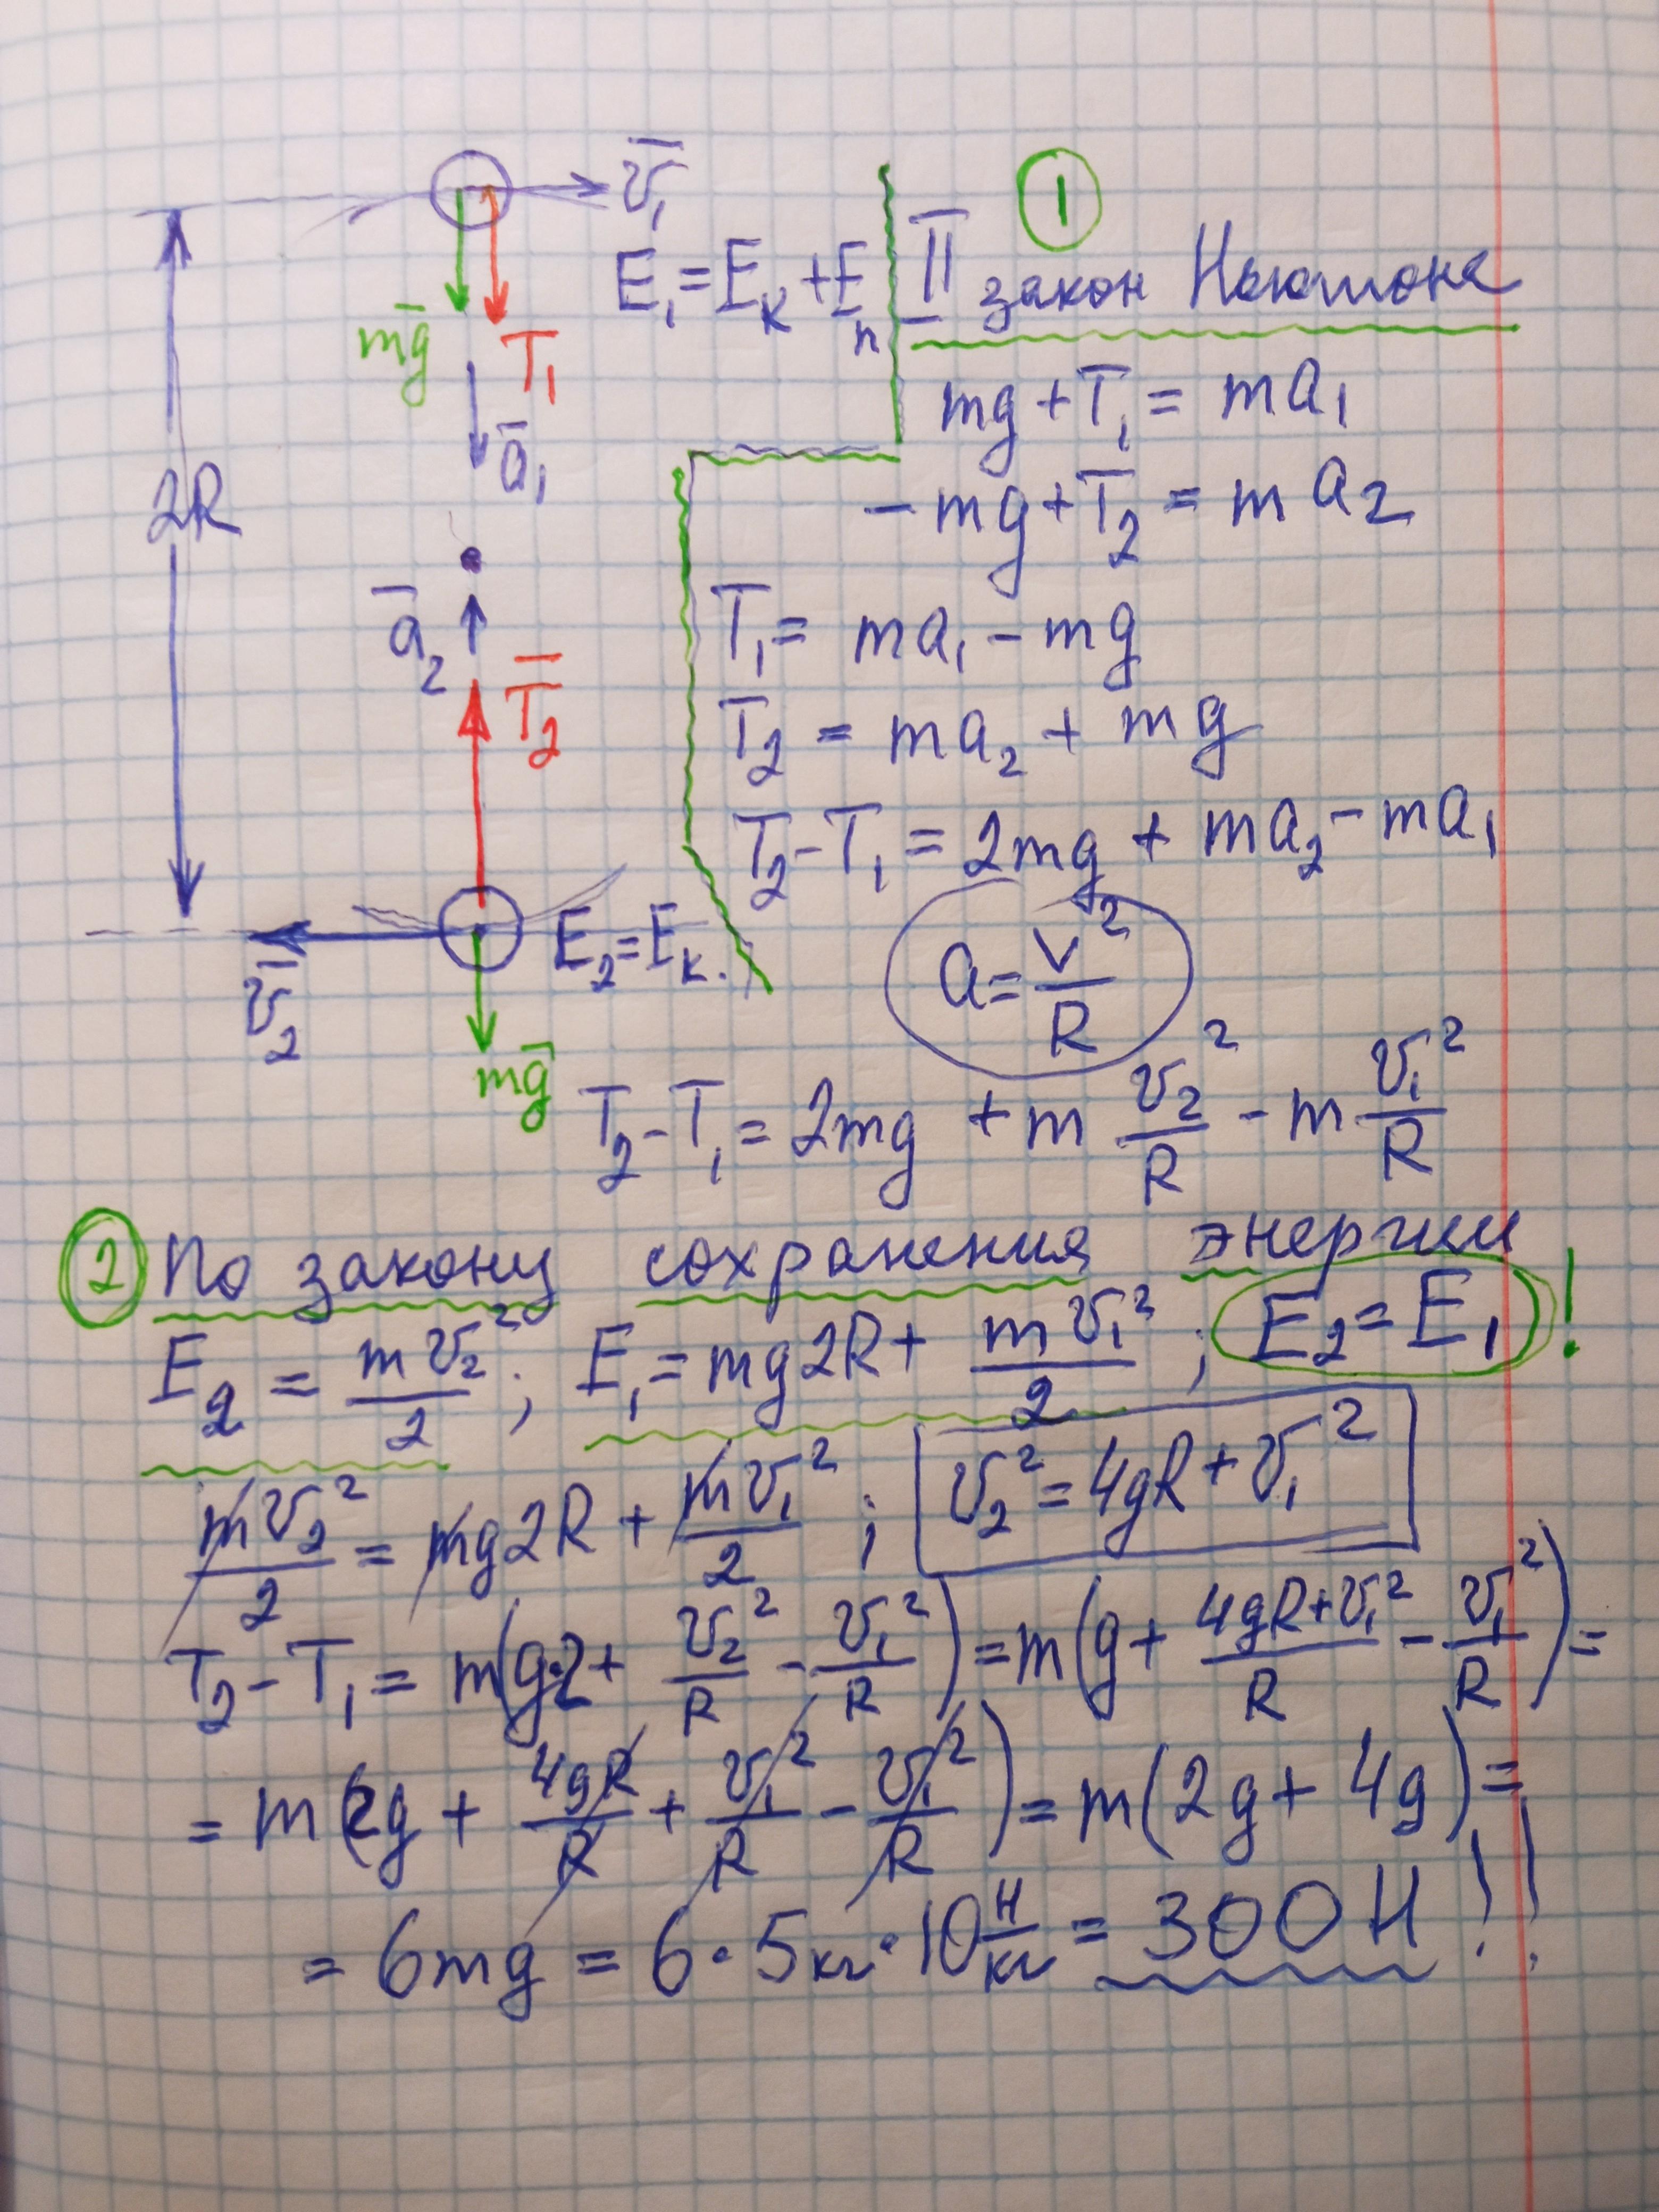 v̅₁
E₁ = Eₖ + Eₙ
mg̅
T₁
a̅₁
2R
a̅₂
T̅₂
E₂ = Eₖ.
v̅₂
mg̅
①
II закон Ньютона
mg + T₁ = ma₁
- mg + T₂ = m a₂
T₁ = ma₁ - mg
T₂ = ma₂ + mg
T₂ - T₁ = 2mg + ma₂ - ma₁
a = v²/R
T₂ - T₁ = 2mg + m v₂²/R - m v₁²/R
② По закону сохранения энергии
E₂ = mv₂²/2 ; E₁ = mg2R + mv₁²/2 ; E₂ = E₁ !
mv₂²/2 = mg2R + mv₁²/2 ; v₂² = 4gR + v₁²
T₂ - T₁ = m(g·2 + v₂²/R - v₁²/R) = m(g + 4gR+v₁²/R - v₁²/R) =
= m(2g + 4gR/R + v₁²/R - v₁²/R) = m(2g + 4g) =
= 6mg = 6 · 5кг · 10 Н/кг = 300 Н !!